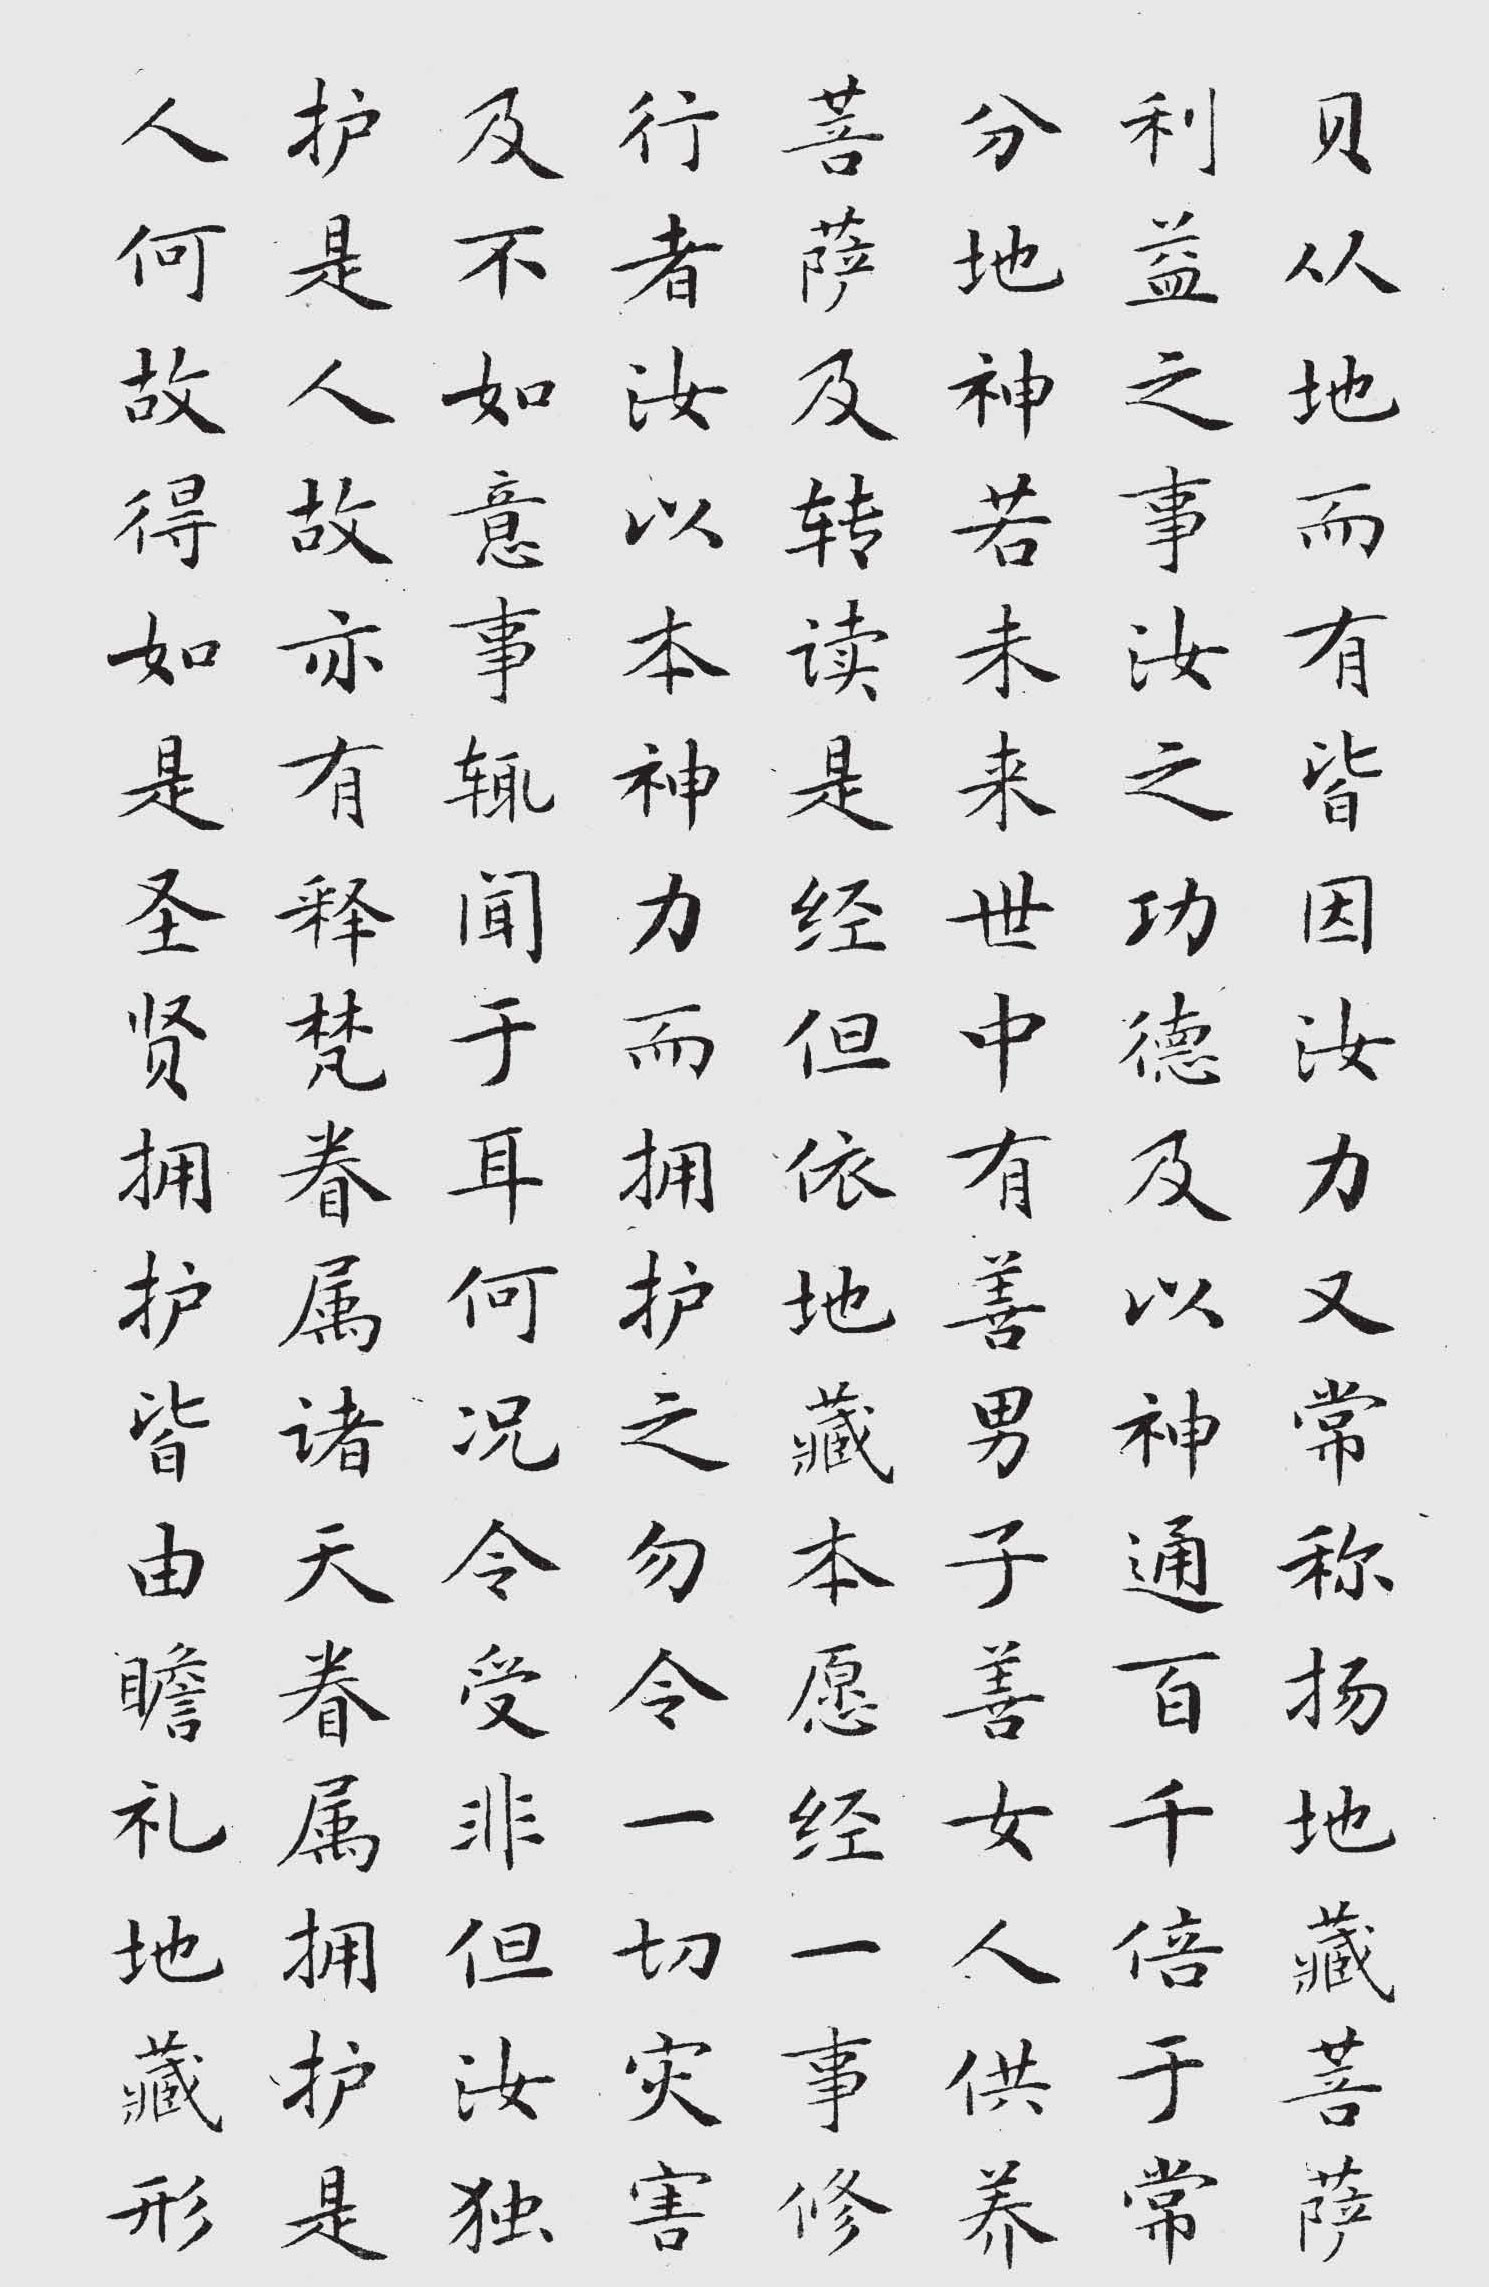 贝从地而有皆因汝力又常称扬地藏菩萨
利益之事汝之功德及以神通百千倍于常
分地神若未来世中有善男子善女人供养
菩萨及转读是经但依地藏本愿经一事修
行者汝以本神力而拥护之勿令一切灾害
及不如意事辄闻于耳何况令受非但汝独
护是人故亦有释梵眷属诸天眷属拥护是
人何故得如是圣贤拥护皆由瞻礼地藏形